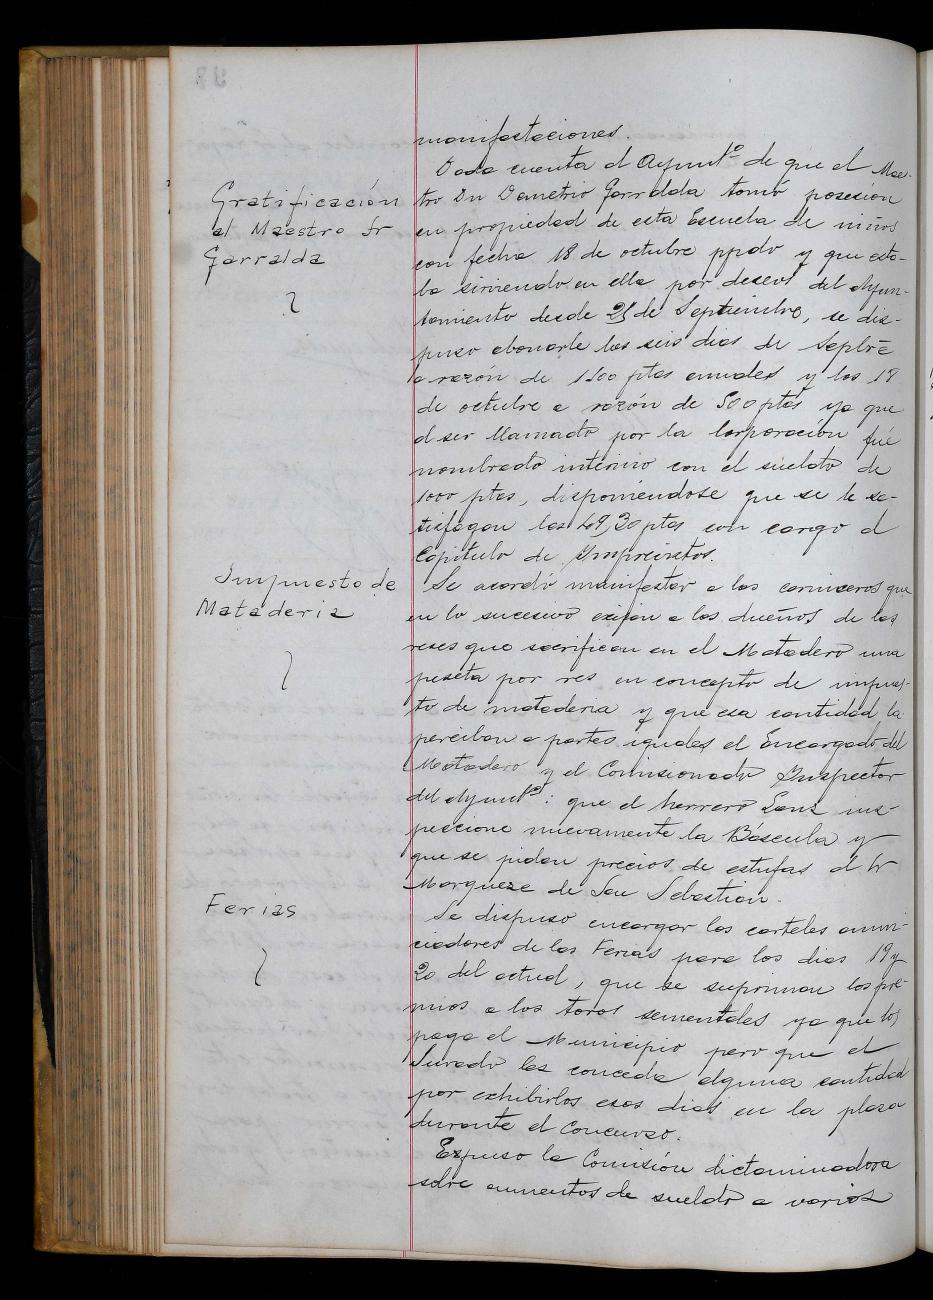 manifestaciones.
Dada cuenta al Ayunt.º de que el Maes-
Gratificación
al Maestro Sr
Garralda
tro Dn Demetrio Garralda tomó posesión
en propiedad de esta Escuela de niños
con fecha 18 de octubre ppdo y que esta-
ba sirviendo en ella por deseos del Ayun-
tamiento desde 25 de Septiembre, se dis-
puso abonarle los seis dias de Septbre
a razón de 1100 ptas anuales y los 18
de octubre a razón de 500 ptas ya que
al ser llamado por la Corporación fué
nombrado interino con el sueldo de
1000 ptas, disponiéndose que se le sa-
tisfagan las 49,30 ptas con cargo al
Capítulo de Imprevistos.
Impuesto de
Mataderia
Se acordó manifestar a los carniceros que
en lo sucesivo exijan a los dueños de las
reses que sacrifican en el Matadero una
peseta por res en concepto de impues-
to de mataderia y que esa cantidad la
perciban a partes iguales el Encargado del
Matadero y el Comisionado Inspector
del Ayunt.º: que el herrero Sanz ins-
peccione nuevamente la Báscula y
que se pidan precios de estufas al Sr
Marqueze de San Sebastian.
Ferias
Se dispuso encargar los carteles anun-
ciadores de las Ferias para los dias 19 y
20 del actual, que se supriman los pre-
mios a los toros sementales ya que los
paga el Municipio pero que el
Jurado les conceda alguna cantidad
por exhibirlos esos dias en la plaza
durante el Concurso.
Expuso la Comisión dictaminadora
sobre aumentos de sueldo a varios